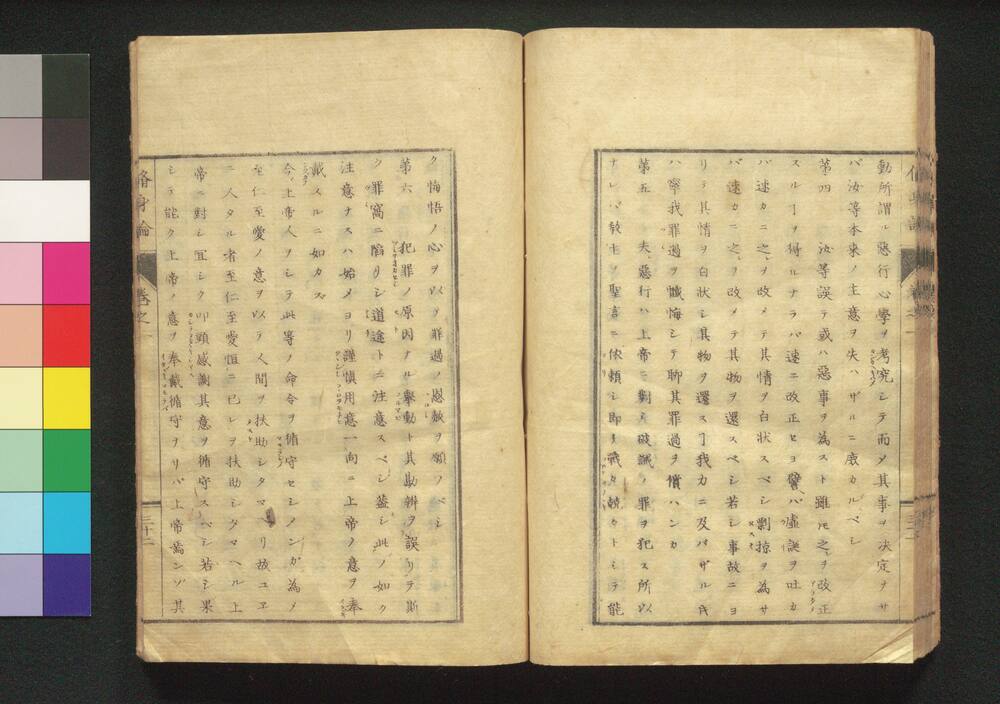 動所謂ル惡行心學ヲ考究シテ而〆其事ヲ決定ヲサ
バ汝等本来ノ主意ヲ失ハザルニ庶カルベシ
第四 汝等誤テ或ハ惡事ヲ為スト雖𪜈之ヲ改正
スルヿヲ得ルナラバ速ニ改正セヨ譬ハバ虚誕ヲ吐カ
バ速カニ之ヲ改メテ其情ヲ白状スベシ剽掠ヲ為サ
バ速カニ之ヲ改メテ其物ヲ還スベシ若シ事故ニヨ
リテ其情ヲ白状シ其物ヲ還スヿ我力ニ及バザル𪜈
ハ寧我罪過ヲ懺悔シテ聊其罪過ヲ償ハンカ
第五 夫惡行ハ上帝ニ對シ破誡ノ罪ヲ犯ス所以
ナレバ救主ノ聖言ニ依頼シ即シ戰々競々トシテ能
ク悔悟ノ心ヲ以テ罪過ノ恩赦ヲ願フベシ
第六 犯罪ノ原因ナル擧動ト其勘辨ヲ誤リテ斯
ク罪窩ニ陷リシ道途トニ注意スベシ蓋シ此ノ如ク
注意ナスハ始メヨリ謹愼用意一向ニ上帝ノ意ヲ奉
戴スルニ如カズ
今上帝人ヲシテ此等ノ命令ヲ循守セシメンガ為メ
至仁至愛ノ意ヲ以テ人間ヲ扶助シタマヘリ故ユヱ
ニ人タル者至仁至愛恒ニ已レヲ扶助シタマヘル上
帝ニ對シ宜シク叩頭感謝其意ヲ循守スベシ若シ果
シテ能ク上帝ノ意ヲ奉戴循守ヲリバ上帝焉ンゾ其
脩身論
卷之一
三十二